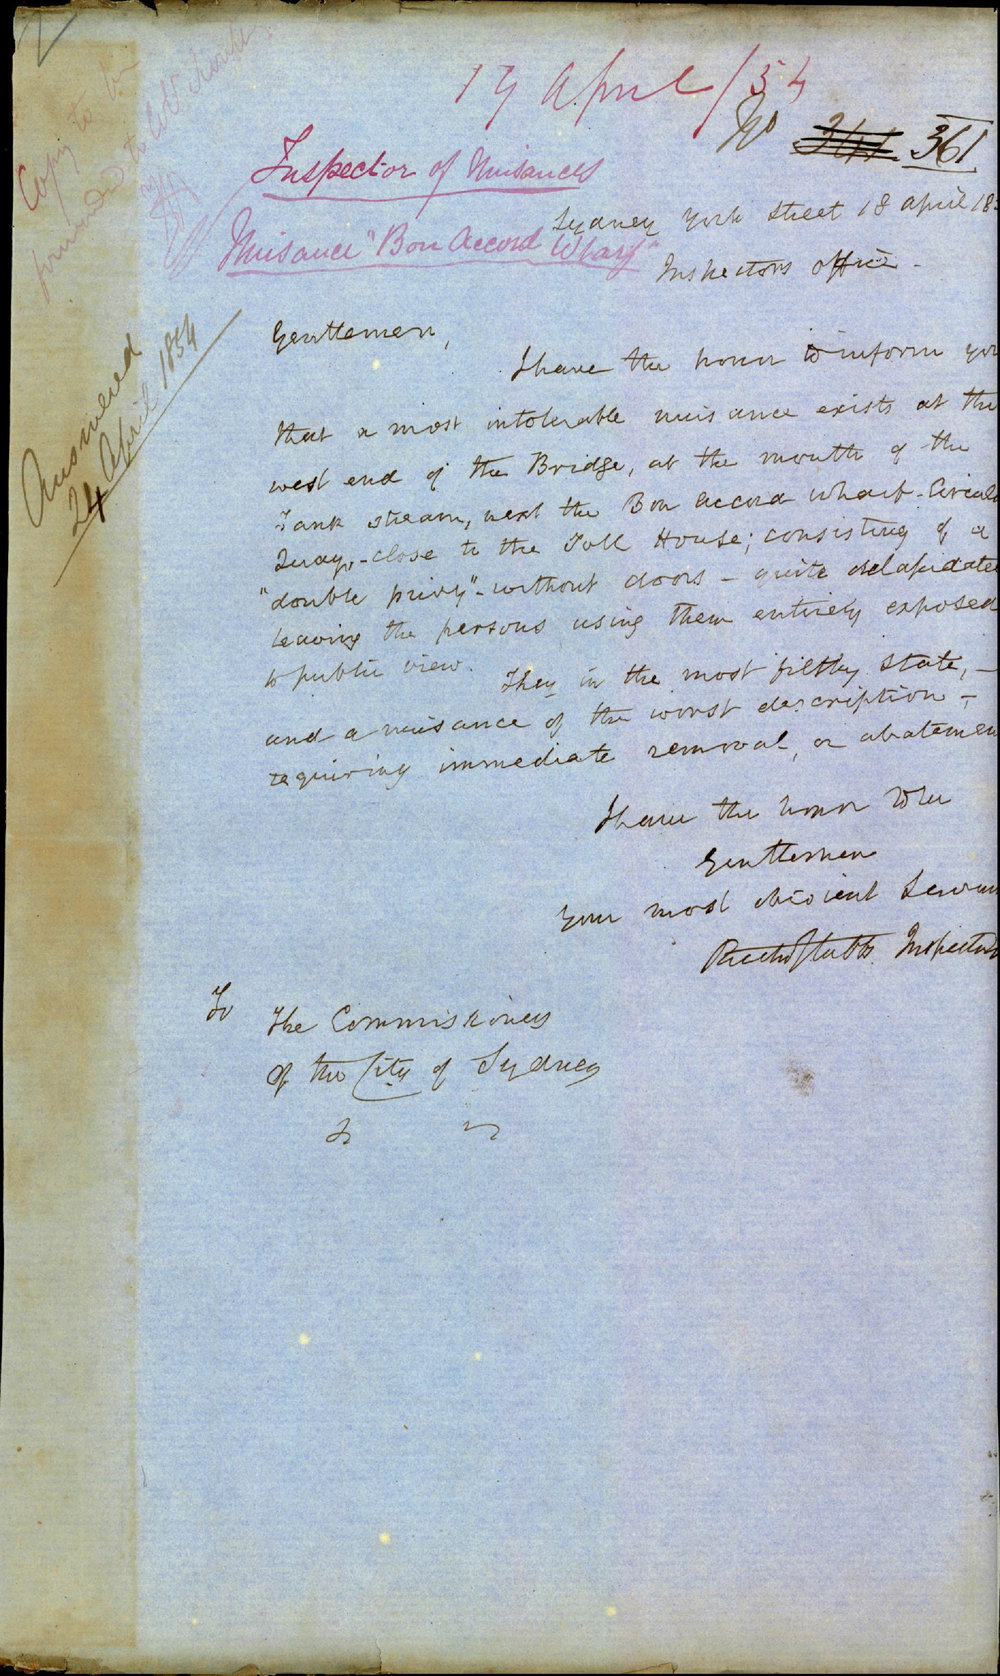 Copy to be
forwarded to
19 April / 54
No 361
Inspector of Nuisances
Nuisance "Bon Accord Wharf"
Sydney York Street 18 April 18
Inspectors office -
Answered
24 April 1854
Gentlemen,
I have the honor to inform you
that a most intolerable nuisance exists at the
west end of the Bridge, at the mouth of the
Tank stream, next the Bon Accord wharf - Circula
Quay, - close to the Toll House; consisting of a
"double privy" - without doors - quite delapidated
leaving the persons using them entirely exposed
to public view. They in the most filthy state, -
and a nuisance of the worst description -
requiring immediate removal, or abatemen
I have the honor to be
Gentlemen
Your most obedient Servan
Richd Stubbs Inspector
To The Commissioners
Of the City of Sydney